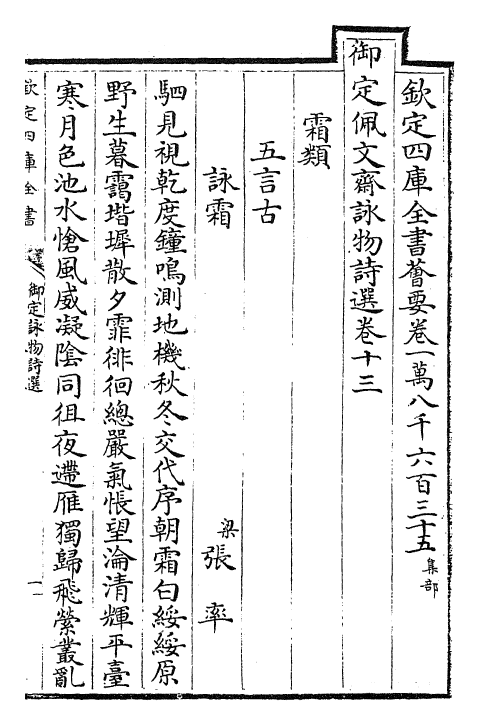 欽定四庫全書薈要卷一萬八千六百三十五集部
御定佩文齋詠物詩選卷十三
霜類
五言古
詠霜　梁張率
駟見視乾度鐘鳴測地機秋冬交代序朝霜白綏綏原
野生暮靄堦墀散夕霏徘徊總嚴氣悵望淪清輝平臺
寒月色池水愴風威凝陰同徂夜遰雁獨歸飛縈叢亂
欽定四庫全書
御定詠物詩選
一